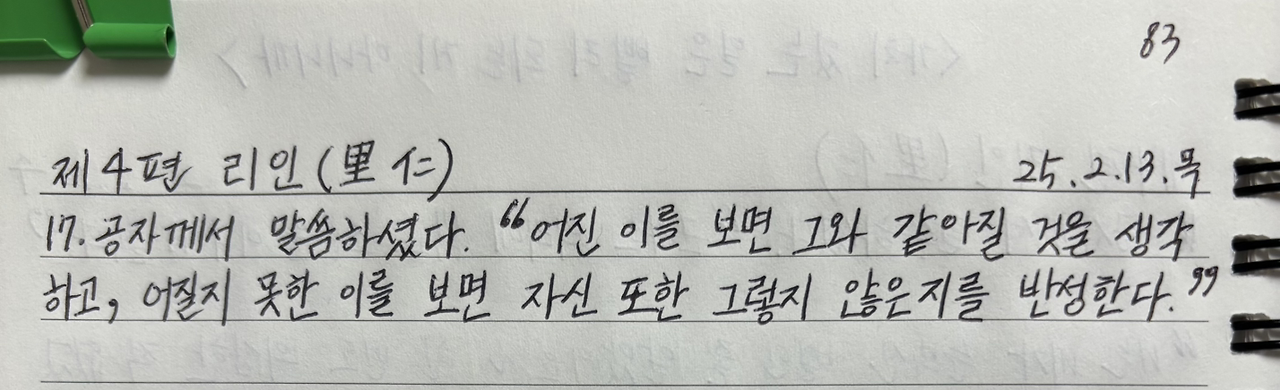 83
제4편 리인(里仁) 25.2.13.목
17. 공자께서 말씀하셨다. “어진 이를 보면 그와 같아질 것을 생각
하고, 어질지 못한 이를 보면 자신 또한 그렇지 않은지를 반성한다.”